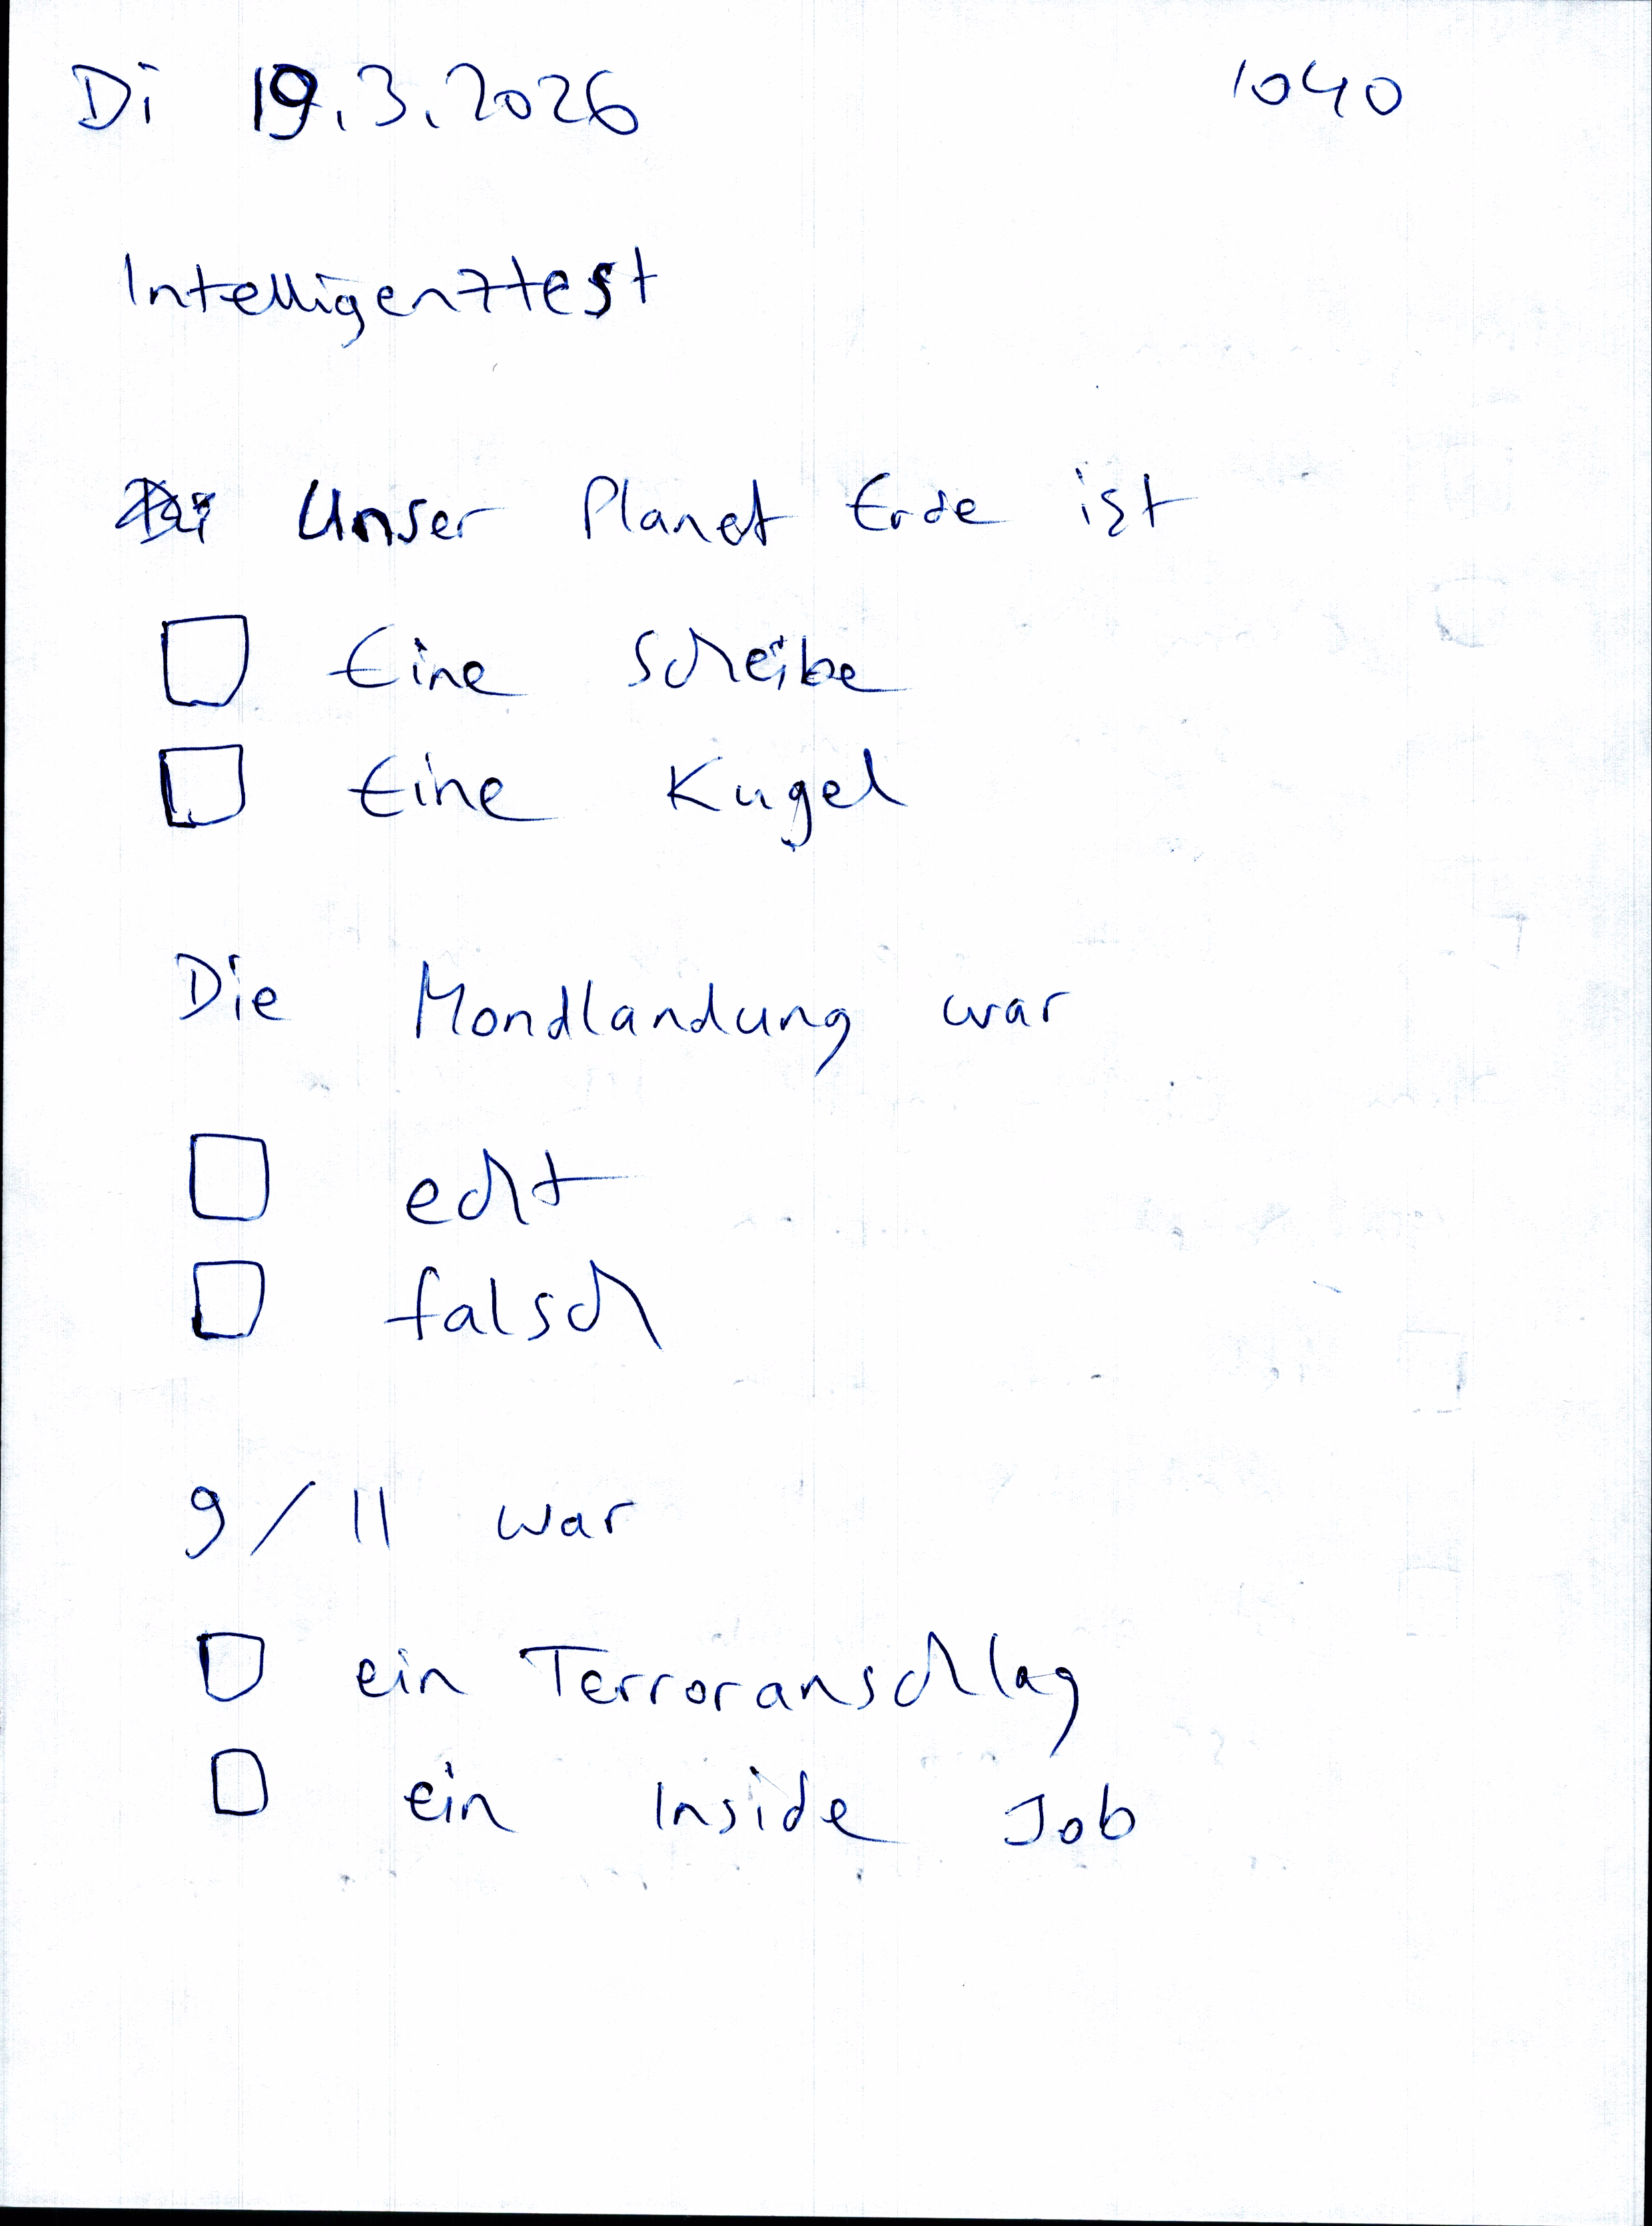 Di 19.3.2026 1040
Intelligenztest
Unser Planet Erde ist
Eine Scheibe
Eine Kugel
Die Mondlandung war
echt
falsch
9/11 war
ein Terroranschlag
ein Inside Job